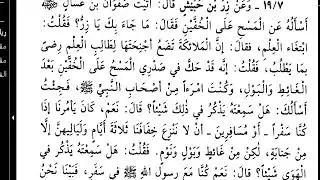 ١٩/٧ - وَعَنْ زِرِّ بْنِ حُبَيْشٍ قَالَ: أَتَيْتُ صَفْوَانَ بْنَ عَسَّالٍ ﷺ
أَسْأَلُهُ عَنِ الْمَسْحِ عَلَى الْخُفَّيْنِ فَقَالَ: مَا جَاءَ بِكَ يَا زِرُّ؟ فَقُلْتُ:
ابْتِغَاءَ الْعِلْمِ، فَقَالَ: إِنَّ الْمَلَائِكَةَ تَضَعُ أَجْنِحَتَهَا لِطَالِبِ الْعِلْمِ رِضًى
بِمَا يَطْلُبُ، فَقُلْتُ: إِنَّهُ قَدْ حَكَّ فِي صَدْرِي الْمَسْحُ عَلَى الْخُفَّيْنِ بَعْدَ
الْغَائِطِ وَالْبَوْلِ، وَكُنْتَ امْرَءًا مِنْ أَصْحَابِ النَّبِيِّ ﷺ، فَجِئْتُ
أَسْأَلُكَ: هَلْ سَمِعْتَهُ يَذْكُرُ فِي ذَلِكَ شَيْئًا؟ قَالَ: نَعَمْ، كَانَ يَأْمُرُنَا إِذَا
كُنَّا سَفْرًا - أَوْ مُسَافِرِينَ - أَنْ لَا نَنْزِعَ خِفَافَنَا ثَلَاثَةَ أَيَّامٍ وَلَيَالِيهِنَّ إِلَّا
مِنْ جَنَابَةٍ، لَكِنْ مِنْ غَائِطٍ وَبَوْلٍ وَنَوْمٍ. فَقُلْتُ: هَلْ سَمِعْتَهُ يَذْكُرُ فِي
الْهَوَى شَيْئًا؟ قَالَ: نَعَمْ كُنَّا مَعَ رَسُولِ اللهِ ﷺ فِي سَفَرٍ، فَبَيْنَا نَحْنُ